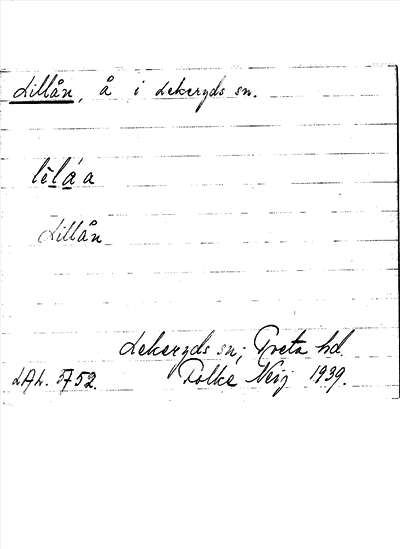 Lillån, å i Lekeryds sn.
lèláa
Lillån
Lekeryds sn; Tveta hd.
LAL. 3752. Folke Neij 1939.